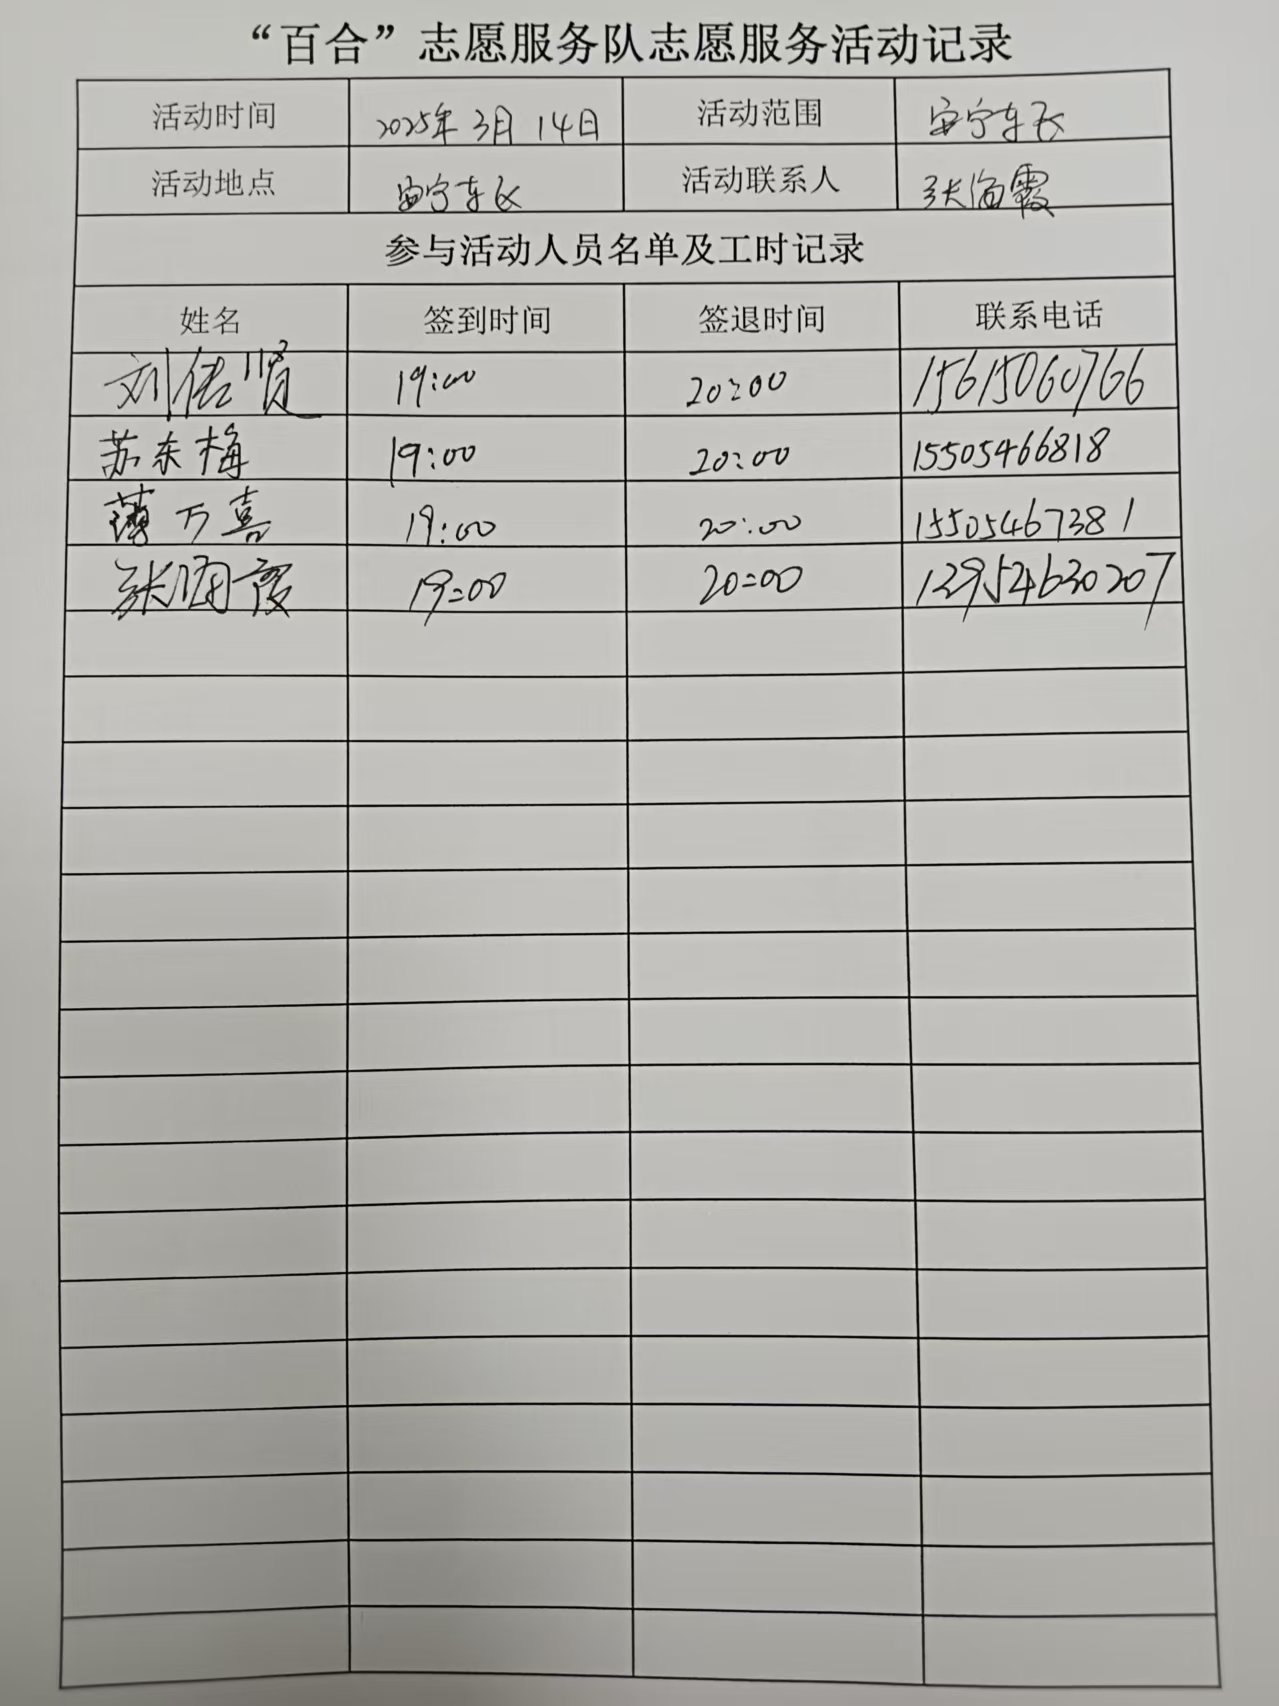 “百合”志愿服务队志愿服务活动记录
活动时间 2025年3月14日 活动范围 安宁东区
活动地点 安宁东区 活动联系人 张海霞
参与活动人员名单及工时记录
姓名 签到时间 签退时间 联系电话
刘佐贤 19:00 20:00 15615060766
苏东梅 19:00 20:00 15505466818
薄万喜 19:00 20:00 15505467381
张海霞 19:00 20:00